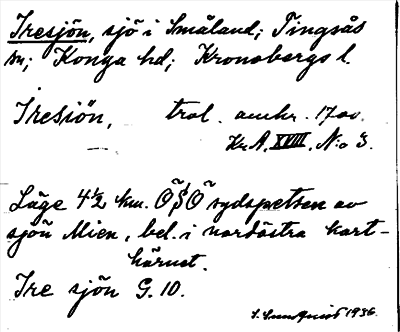 Iresjön, sjö i Småland; Tingsås
sn; Konga hd; Kronobergs l.
Iresiön, trol. omkr. 1700.
Kr. A. XVIII. N:o 3.
Läge 4½ km. ÖSÖ sydspetsen av
sjön Mien, bel. i nordöstra kart-
hörnet.
Ire sjön G. 10.
S. Sundquist 1936.